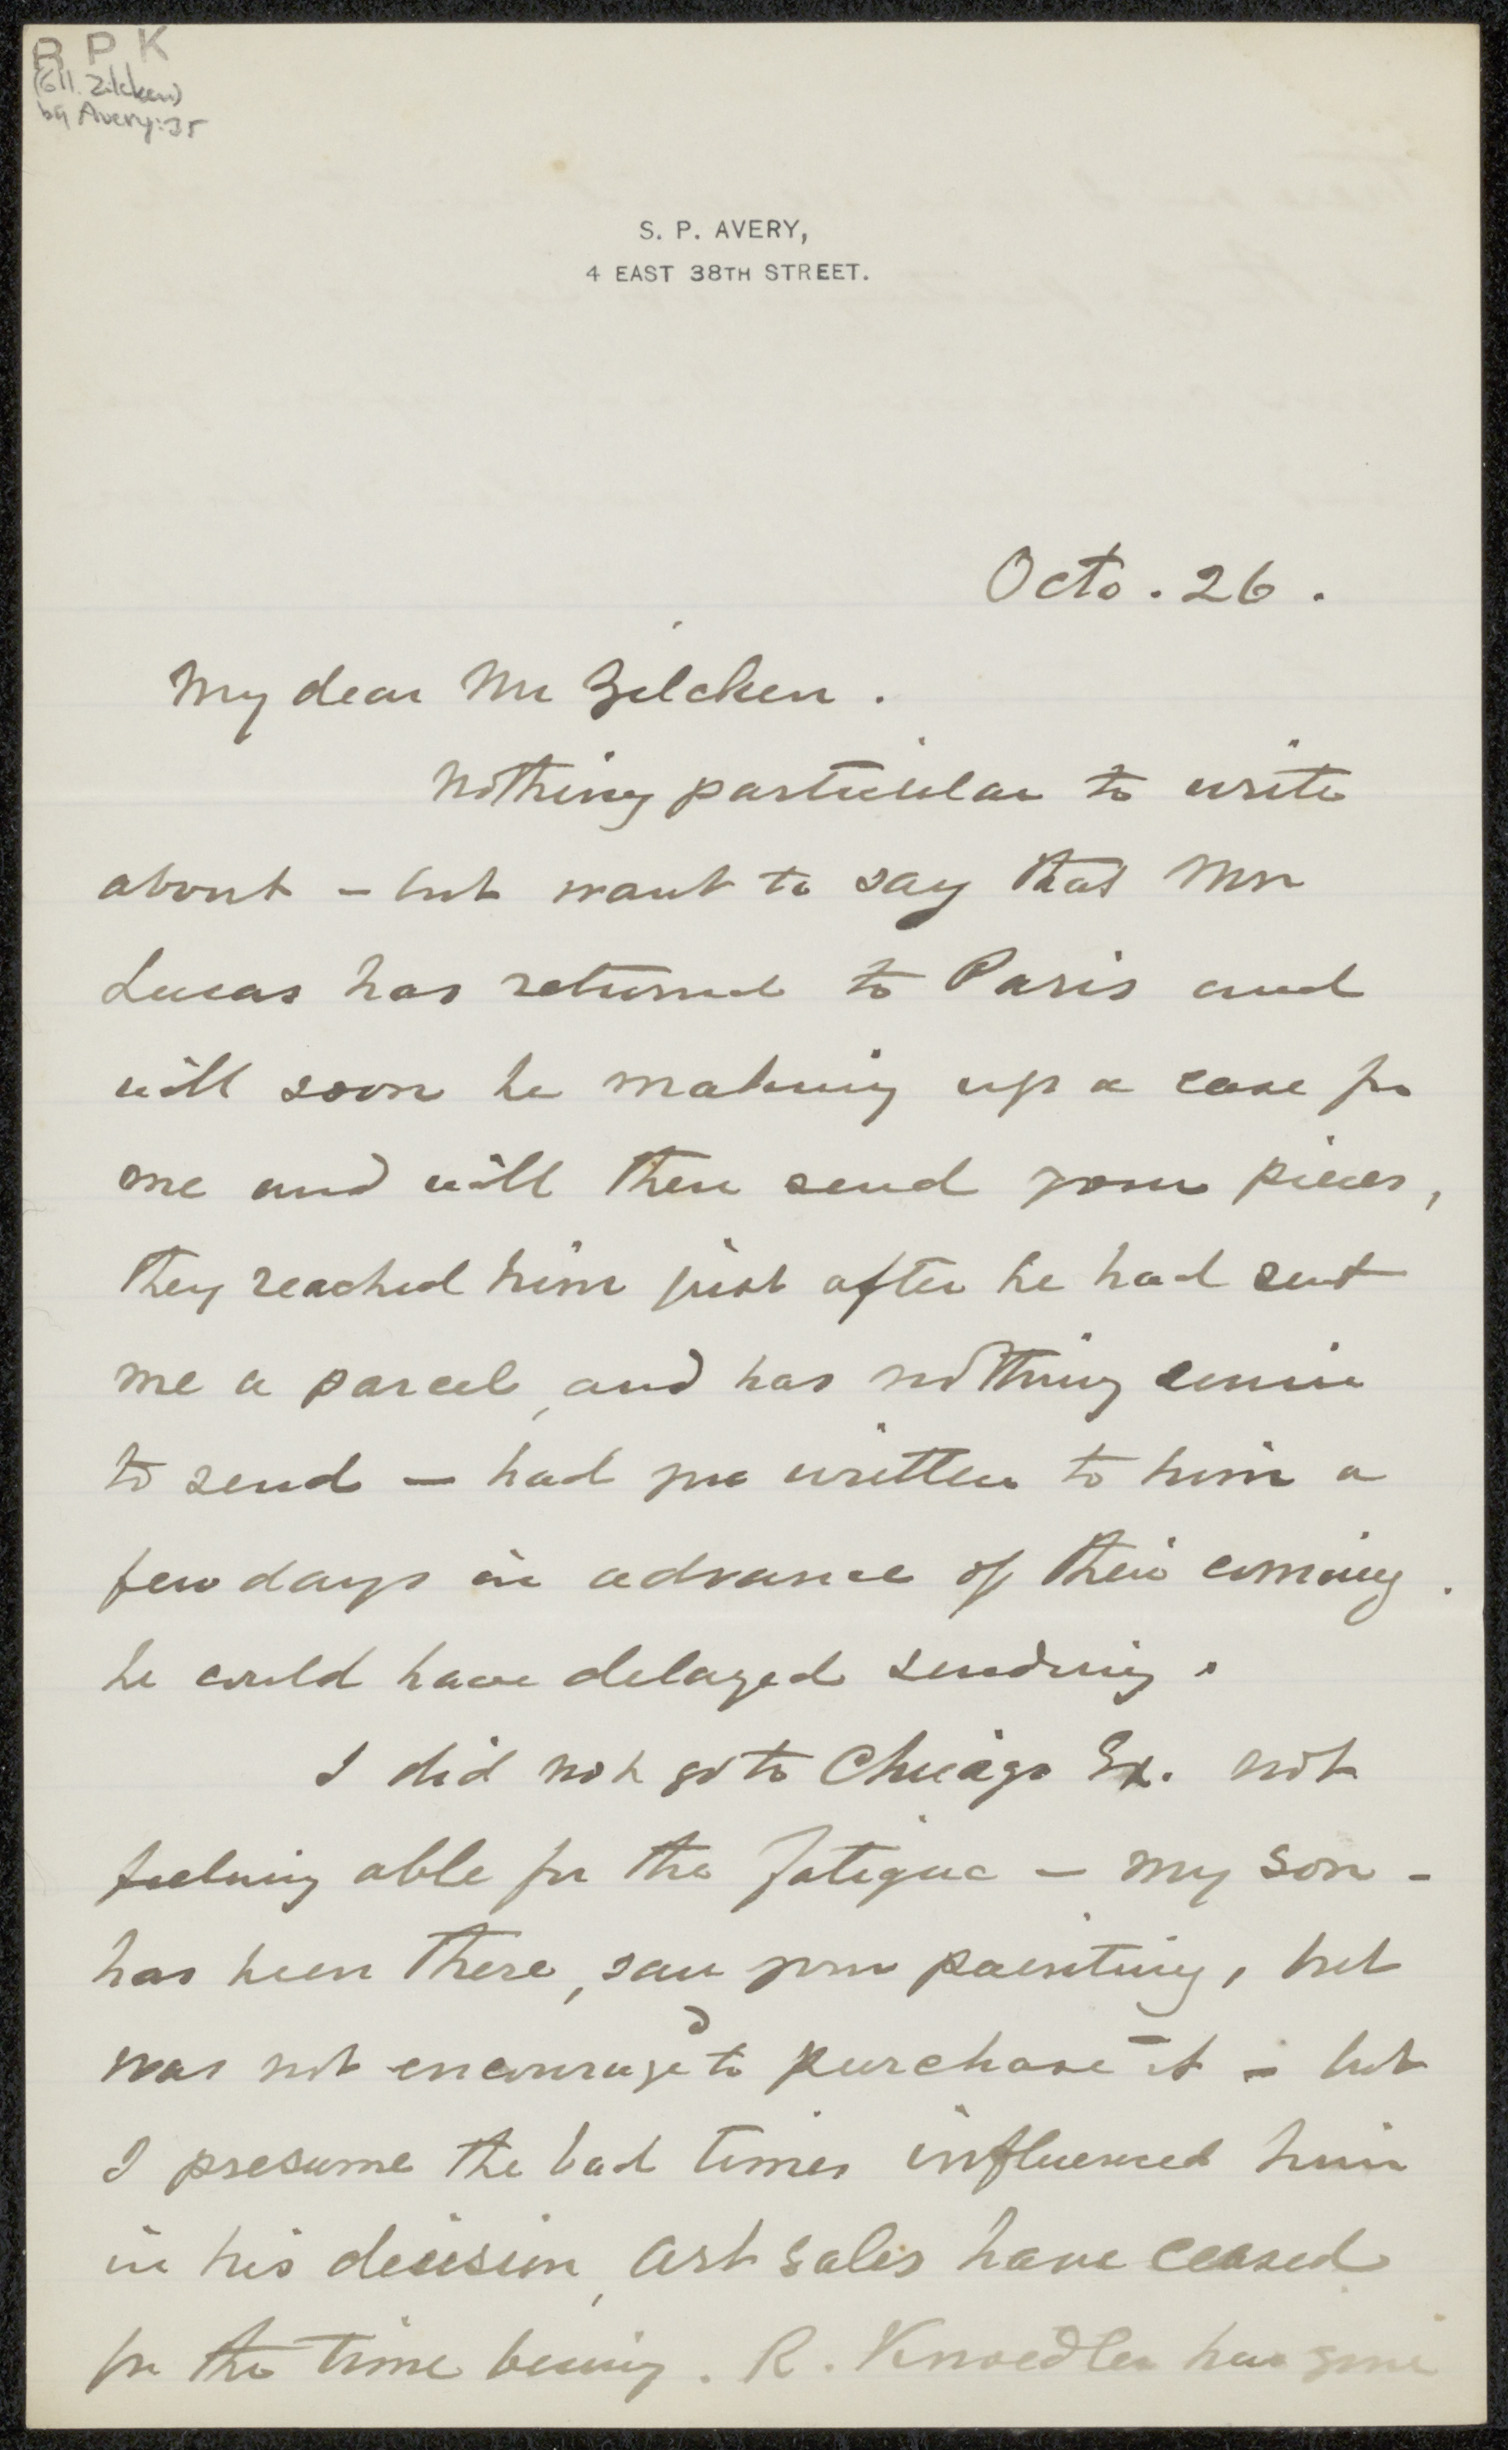 R P K
(Coll. Zilcken)
bq Avery:35
S. P. AVERY,
4 EAST 38TH STREET.
Octo. 26.
My dear Mr Zilcken.
Nothing particular to write
about - but want to say that Mr
Lucas has returned to Paris and
will soon be making up a case for
me and will then send your pieces,
they reached him just after he had sent
me a parcel, and has nothing since
to send - had you written to him a
few days in advance of their coming.
he could have delayed sending.
I did not go to Chicago Ex. not
feeling able for the fatigue - my son -
has been there, saw your painting, but
was not encouraged to purchase it - but
I presume the bad times influenced him
in his decision, art sales have ceased
for the time being. R. Knoedler has gone